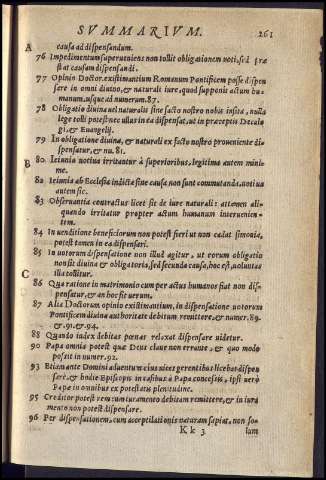 SVMMARIVM. 261
A
causa ad dispensandum.
76 Impedimentum superueniens non tollit obligationem voti, sed præ
stat causam dispensandi.
77 Opinio Doctor. existimantium Romanum Pontificem posse dispen
sare in omni diuino, & naturali iure, quod supponit actum hu-
manum. usque ad numerum. 87.
78 Obligatio diuina uel naturalis sine facto nostro nobis insita, nulla
lege tolli potest nec ullus in ea dispensat, ut in præceptis Decalo
gi, & Euangelij.
79 In obligatione diuina, & naturali ex facto nostro proueniente di-
spensatur, & nu. 81.
B
80 Ieiunia uotiua irritantur à superioribus, legitima autem mini-
me.
82 Ieiunia ab Ecclesia indicta sine causa non sunt commutanda, uotiua
autem sic.
83 Obseruantia contractus licet sit de iure naturali: attamen ali-
quando irritatur propter actum humanum interuenien-
tem.
84 In uenditione beneficiorum non potest fieri ut non cadat simonia,
potest tamen in ea dispensari.
85 In uotorum dispensatione non illud agitur, ut eorum obligatio
non sit diuina & obligatoria, sed secunda causa, hoc est, uoluntas
illa tollitur.
C
86 Quæ ratione in matrimonio cum per actus humanos fiat non dis-
pensatur, & an hoc fit uerum.
87 Alia Doctorum opinio existimantium, in dispensatione uotorum
Pontificem diuina authoritate debitum remittere, & numer. 89.
&. 91. &. 94.
88 Quando iudex debitas pœnas relaxat dispensare uidetur.
90 Papa omnia potest quæ Deus claue non errante, & quo modo
possit in numer. 92.
93 Etiam ante Domini aduentum eius uices gerentibus licebat dispen
sare, & hodie Episcopis in casibus à Papa concessis, ipsi uerò
Papæ in omnibus ex potestatis plenitudine.
95 Creditor potest rem cum iuramento debitam remittere, & in iura
mento non potest dispensare.
96 Per dispensationem, cum acceptilationis naturam sapiat, non so-
Kk 3 lum